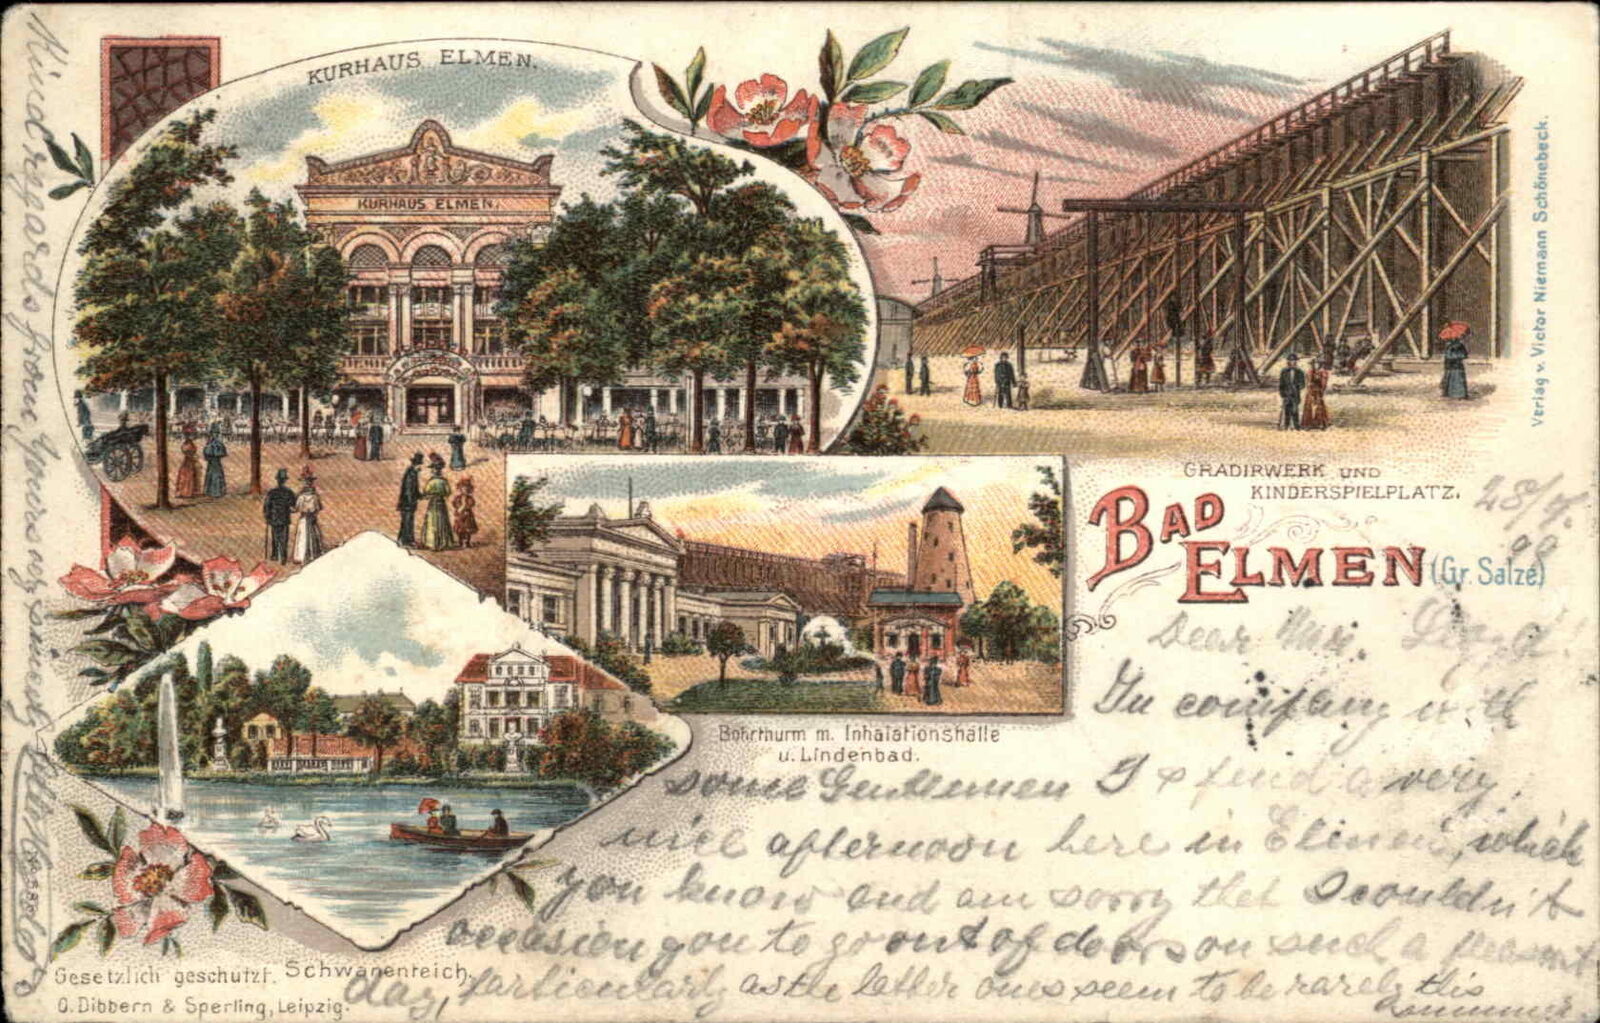 KURHAUS ELMEN.
KURHAUS ELMEN.
Verlag v. Victor Niemann Schönebeck.
GRADIRWERK UND
KINDERSPIELPLATZ.
BAD
ELMEN (Gr. Salze)
28/7.
99
Bohrthurm m. Inhalationshalle
u. Lindenbad.
Dear
In company with
some Gentlemen I spend a very
nice afternoon here in Elmen, which
you know and am sorry that I couldn't
occasion you to go out of doors on such a pleasant
day, particularly as the better ones seem to be rarely this
summer.
Kind regards from Yours
Schwanenteich.
Gesetzlich geschützt.
O. Dibbern & Sperling, Leipzig.